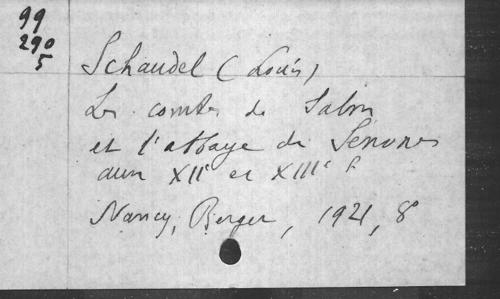 99
290
5
Schaudel (Louis)
Les comtes de Salm
et l'abbaye de Senones
aux XIIe et XIIIe s.
Nancy, Berger, 1921, 8°